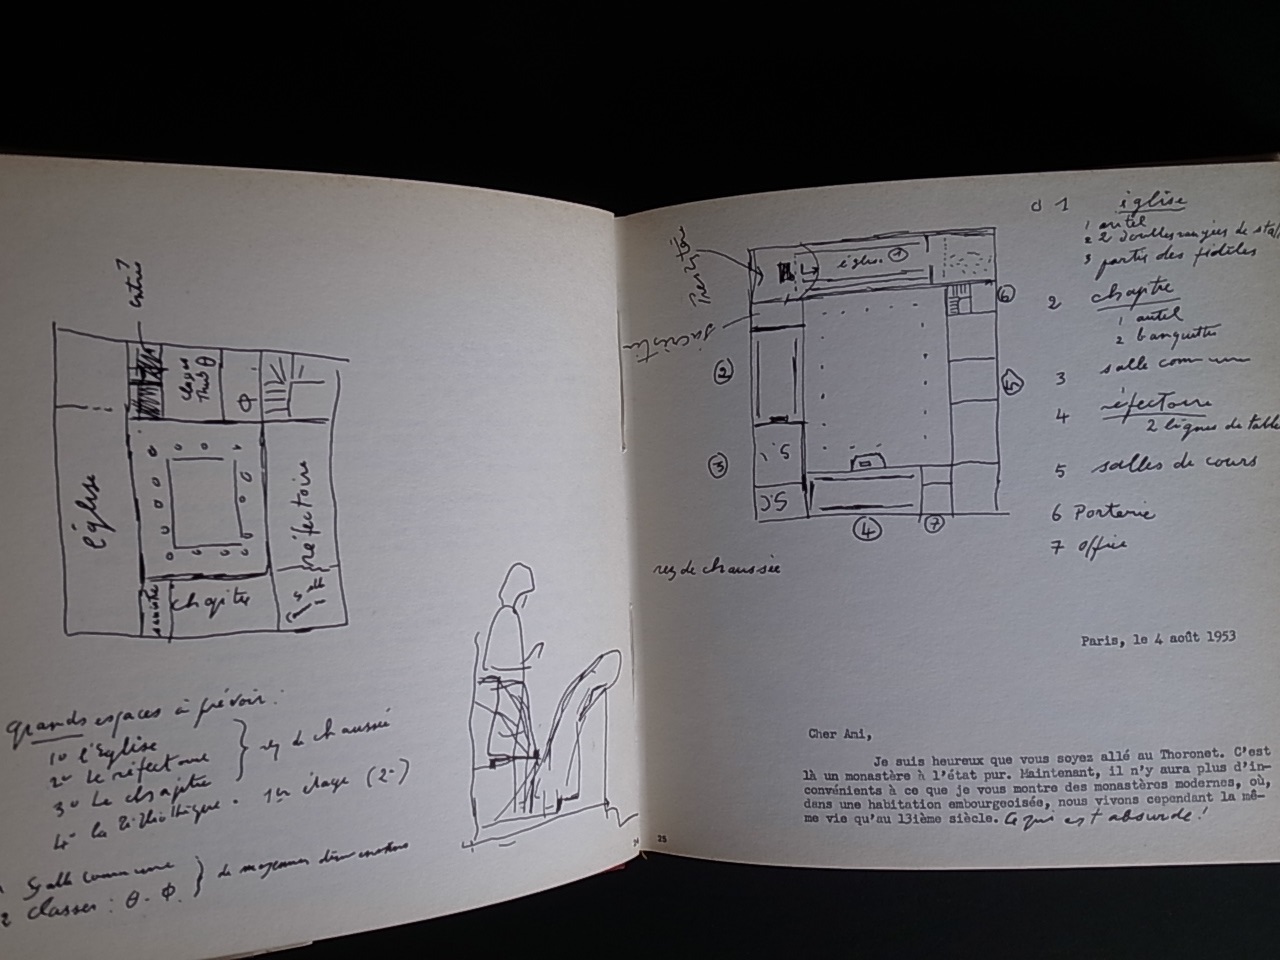 entrée?
classes
Θ
Φ
église
réfectoire
sacristie
chapitre
salle
grands espaces à prévoir :
1º l'Eglise
2º Le réfectoire
3º Le chapitre
rez de chaussée
4º la Bibliothèque . 1er étage (2º)
1 Salle commune
2 classes : Θ - Φ.
de moyennes dimensions
24
sacristie
église 1
2
3
S.C
4
7
6
5
rez de chaussée
1 église
1 autel
2 2 doubles rangées de stal
3 partie des fidèles
2 chapitre
1 autel
2 banquettes
3 salle commune
4 réfectoire
2 lignes de table
5 salles de cours
6 Porterie
7 office
Paris, le 4 août 1953
Cher Ami,
Je suis heureux que vous soyez allé au Thoronet. C'est
là un monastère à l'état pur. Maintenant, il n'y aura plus d'in-
convénients à ce que je vous montre des monastères modernes, où,
dans une habitation embourgeoisée, nous vivons cependant la mê-
me vie qu'au 13ième siècle. Ce qui est absurde !
25